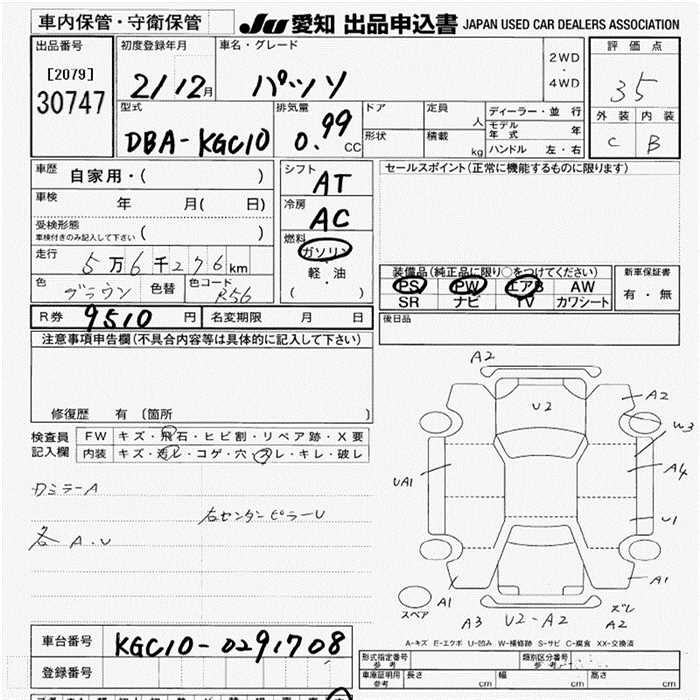 車内保管・守衛保管
JU 愛知 出品申込書 JAPAN USED CAR DEALERS ASSOCIATION
出品番号
[2079]
30747
初度登録年月
21/12月
車名・グレード
パッソ
2WD
・
4WD
評価点
35
外装 内装
C B
型式
DBA-KGC10
排気量
0.99 CC
ドア
形状
定員 人
積載 kg
ディーラー・並行
モデル年式 年
ハンドル 左・右
車歴
自家用・( )
車検
年 月( 日)
受検形態
車検付きのみ記入して下さい ( )
走行
5万6千276km
色
ブラウン
色替
色コード
R56
シフト
AT
冷房
AC
燃料
ガソリン
・
軽・油
( )
セールスポイント(正常に機能するものに限ります)
装備品(純正品に限り○をつけてください)
PS PW エアB AW
SR ナビ TV カワシート
新車保証書
有・無
R券 9510 円
名変期限 月 日
後日品
注意事項申告欄(不具合内容等は具体的に記入して下さい)
修復歴 有 [箇所 ]
検査員
記入欄
FW キズ・飛石・ヒビ割・リペア跡・X要
内装 キズ・汚レ・コゲ・穴・スレ・キレ・破レ
カミラーA
右センターピラーU
各 A.U
A2
U2
A2
W3
UA1
A4
U1
A1
A1
スペア
A3
U2-A2
ズレ
A2
A-キズ E-エクボ U-凹み W-補修跡 S-サビ C-腐食 XX-交換済
車台番号
KGC10-0291708
登録番号
形式指定番号
参考
類別区分番号
参考
車庫証明用
参考
長さ cm
幅 cm
高さ cm